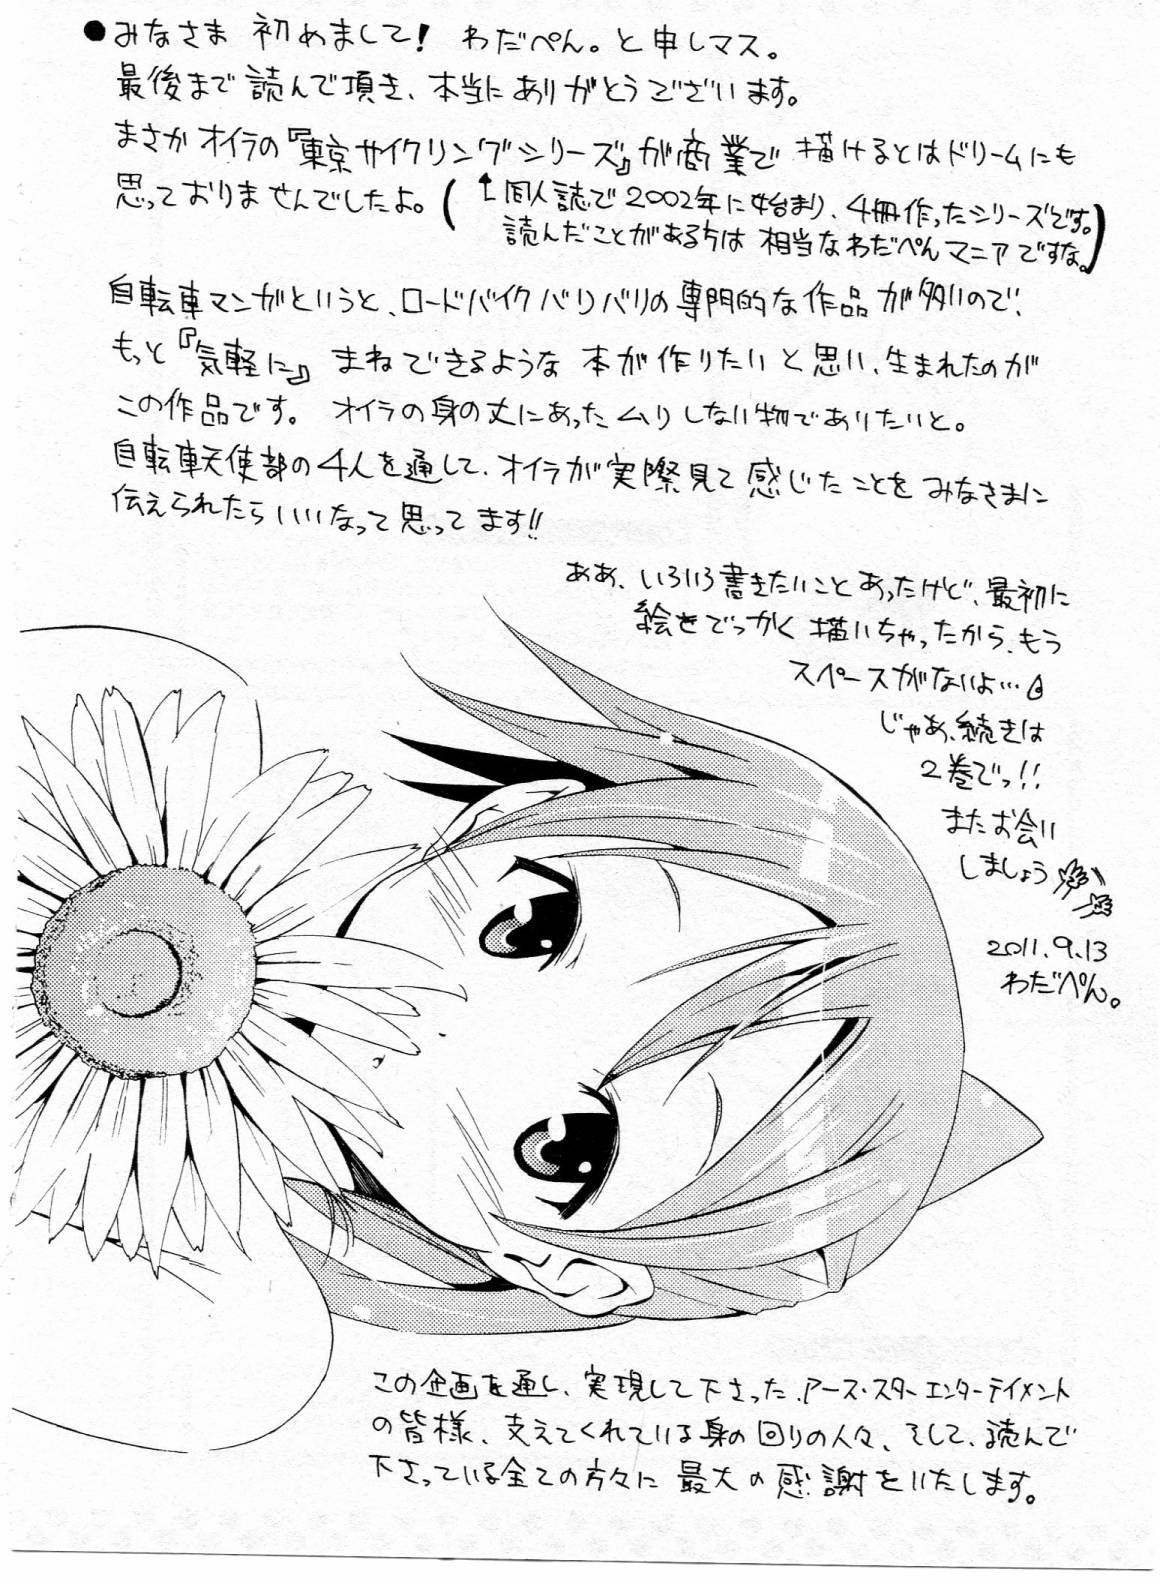 ●みなさま 初めまして! わだぺん。と申しマス。
最後まで読んで頂き、本当にありがとうございます。
まさかオイラの『東京サイクリングシリーズ』が商業で 描けるとはドリームにも
思っておりませんでしたよ。(↑同人誌で2002年に始まり、4冊作ったシリーズです。
読んだことがある方は 相当なわだぺんマニアですな。)
自転車マンガというと、ロードバイクバリバリの専門的な作品が多いので、
もっと『気軽に』 まねできるような 本が作りたいと思い、生まれたのが
この作品です。 オイラの身の丈にあったムリしない物でありたいと。
自転車天使部の4人を通して、オイラが実際見て感じたことをみなさまに
伝えられたらいいなって思ってます!!
ああ、いろいろ書きたいことあったけど、最初に
絵をでっかく描いちゃったから、もう
スペースがないよ…
じゃあ、続きは
2巻でっ!!
またお会い
しましょう
2011.9.13
わだぺん。
この企画を通し、実現して下さった、アース・スターエンターテイメント
の皆様、支えてくれている身の回りの人々、そして、読んで
下さっている全ての方々に 最大の感謝をいたします。